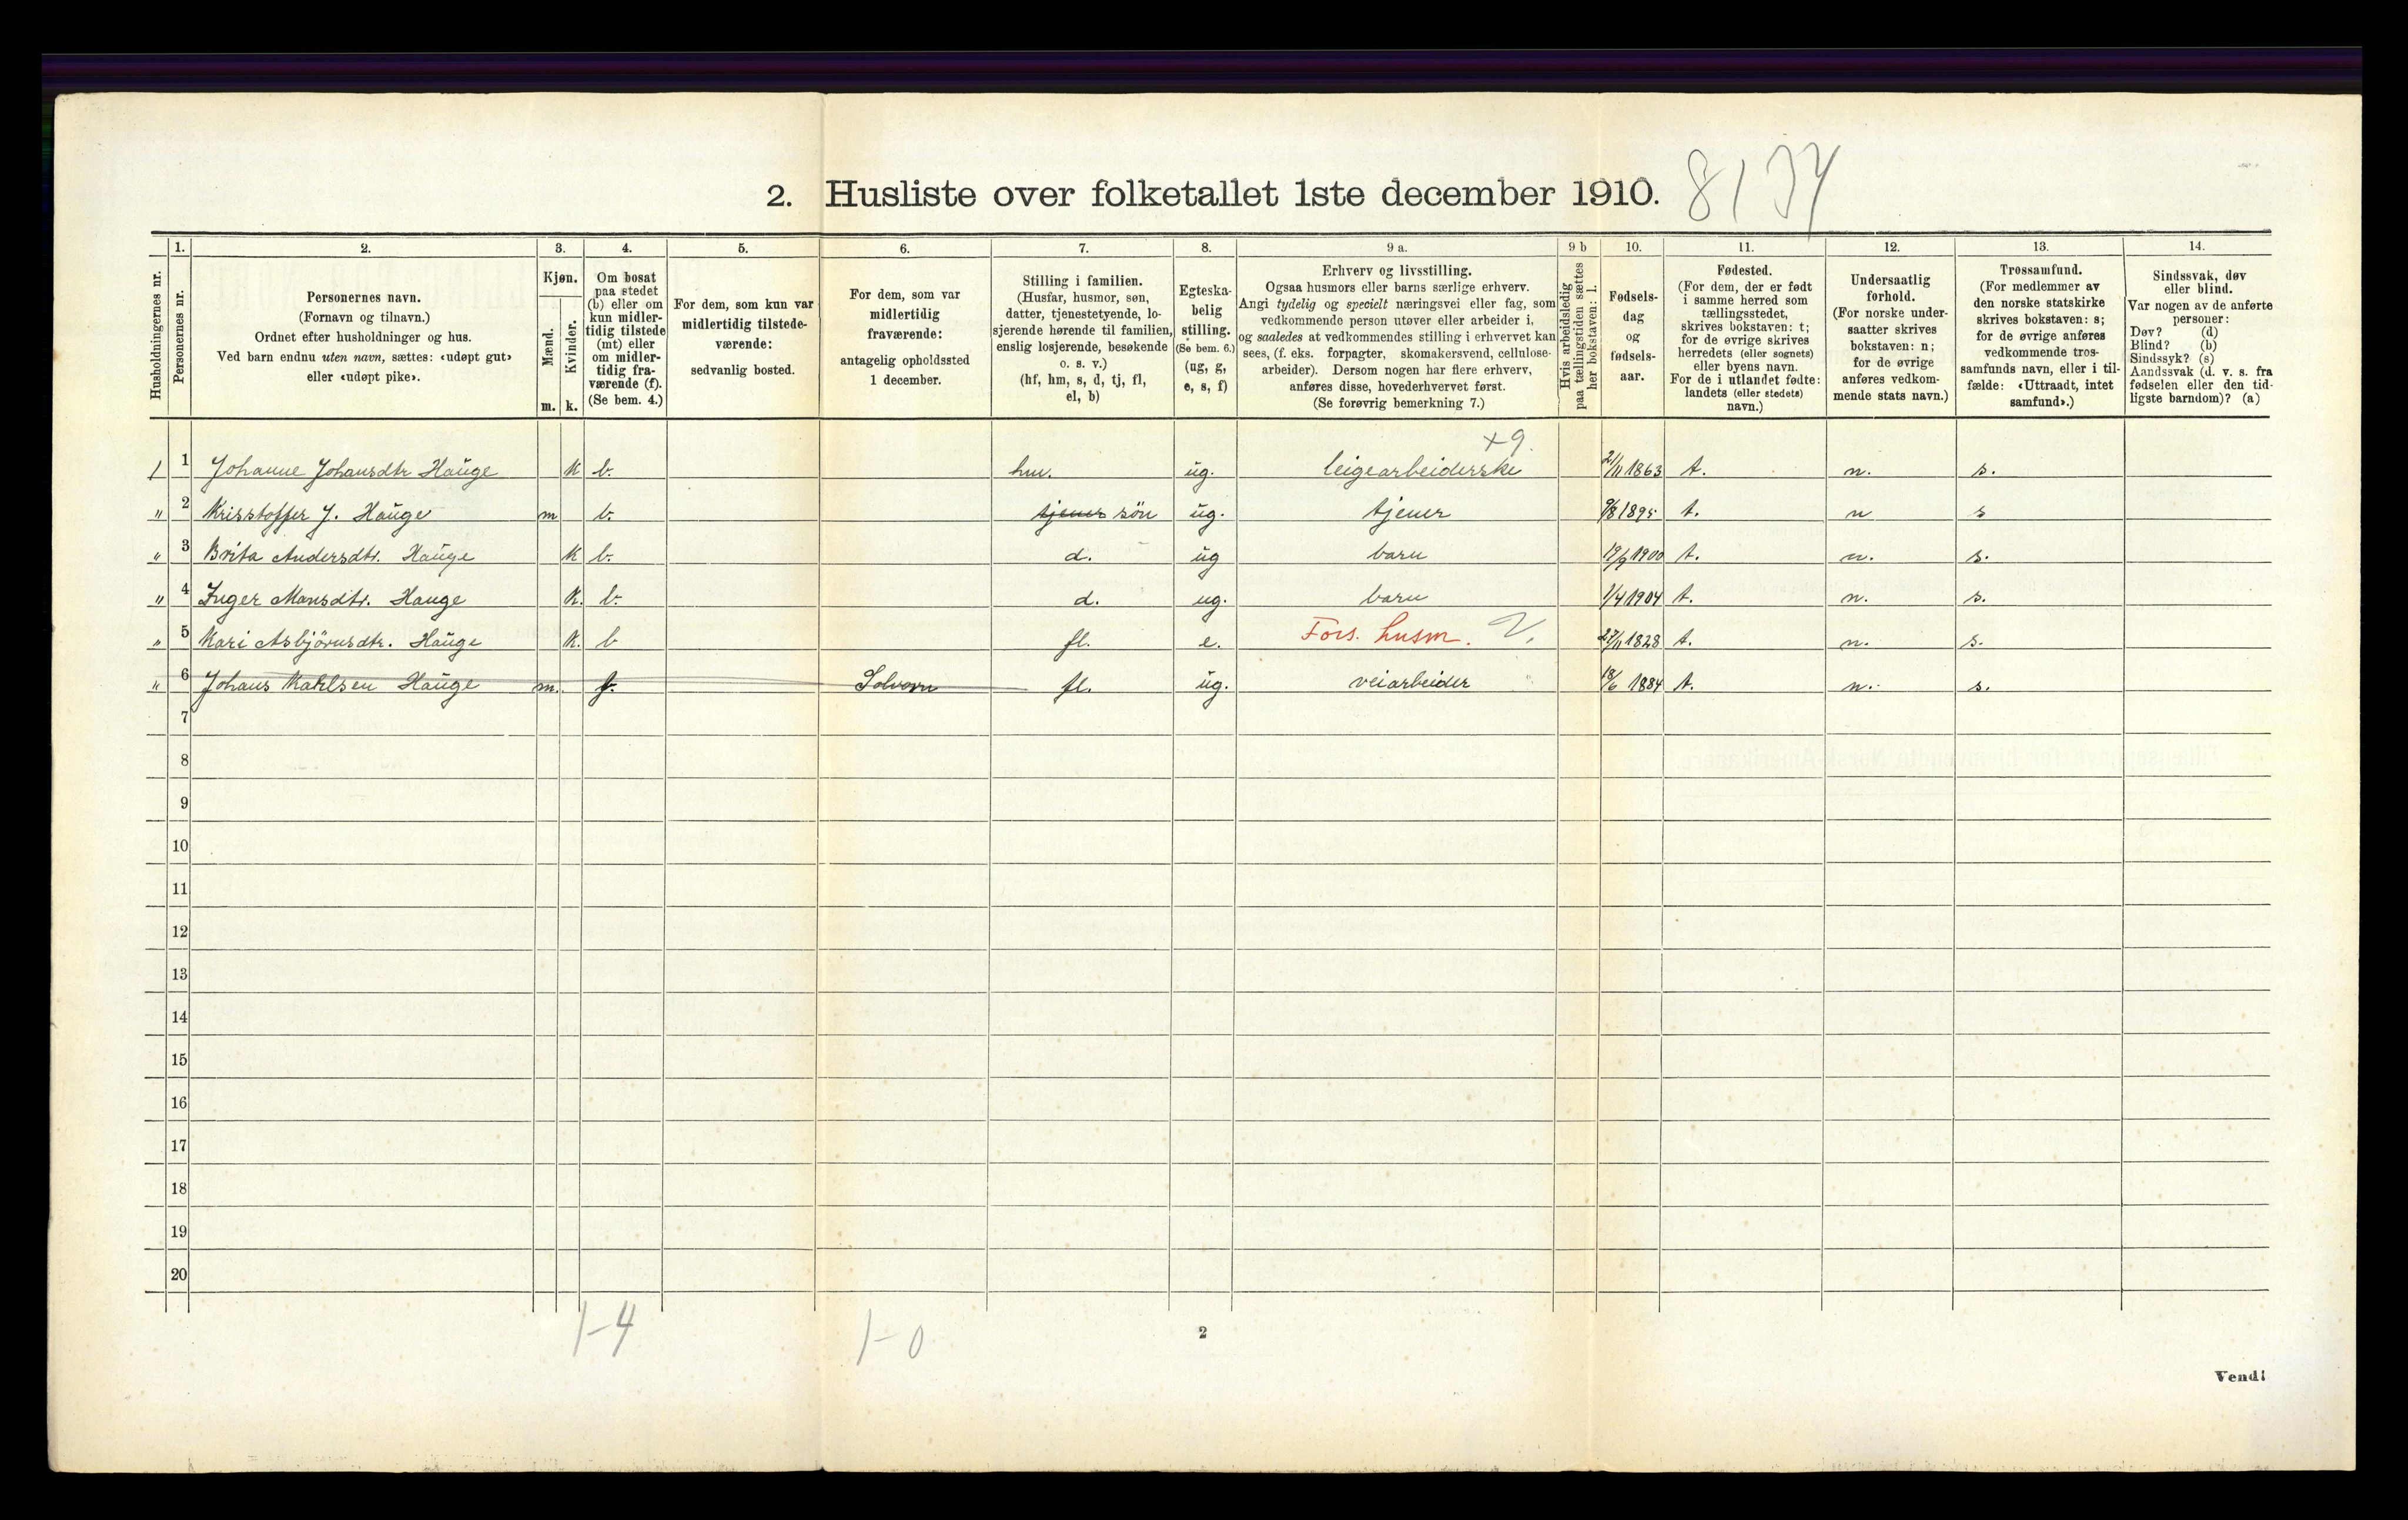 2. Husliste over folketallet 1ste december 1910.
1. 2. 3. 4. 5. 6. 7. 8. 9 a. 9 b 10. 11. 12. 13. 14.
Husholdningernes nr.
Personernes nr.
Personernes navn.
(Fornavn og tilnavn.)
Ordnet efter husholdninger og hus.
Ved barn endnu uten navn, sættes: «udøpt gut»
eller «udøpt pike».
Kjøn.
Mænd.
Kvinder.
m. k.
Om bosat
paa stedet
(b) eller om
kun midler-
tidig tilstede
(mt) eller
om midler-
tidig fra-
værende (f).
(Se bem. 4.)
For dem, som kun var
midlertidig tilstede-
værende:
sedvanlig bosted.
For dem, som var
midlertidig
fraværende:
antagelig opholdssted
1 december.
Stilling i familien.
(Husfar, husmor, søn,
datter, tjenestetyende, lo-
sjerende hørende til familien,
enslig losjerende, besøkende
o. s. v.)
(hf, hm, s, d, tj, fl,
el, b)
Egteska-
belig
stilling.
(Se bem. 6.)
(ug, g,
e, s, f)
Erhverv og livsstilling.
Ogsaa husmors eller barns særlige erhverv.
Angi tydelig og specielt næringsvei eller fag, som
vedkommende person utøver eller arbeider i,
og saaledes at vedkommendes stilling i erhvervet kan
sees, (f. eks. forpagter, skomakersvend, cellulose-
arbeider). Dersom nogen har flere erhverv,
anføres disse, hovederhvervet først.
(Se forøvrig bemerkning 7.)
Hvis arbeidsledig
paa tællingstiden sættes
her bokstaven: l.
Fødsels-
dag
og
fødsels-
aar.
Fødested.
(For dem, der er født
i samme herred som
tællingsstedet,
skrives bokstaven: t;
for de øvrige skrives
herredets (eller sognets)
eller byens navn.
For de i utlandet fødte:
landets (eller stedets)
navn.)
Undersaatlig
forhold.
(For norske under-
saatter skrives
bokstaven: n;
for de øvrige
anføres vedkom-
mende stats navn.)
Trossamfund.
(For medlemmer av
den norske statskirke
skrives bokstaven: s;
for de øvrige anføres
vedkommende tros-
samfunds navn, eller i til-
fælde: «Uttraadt, intet
samfund».)
Sindssvak, døv
eller blind.
Var nogen av de anførte
personer:
Døv? (d)
Blind? (b)
Sindssyk? (s)
Aandssvak (d. v. s. fra
fødselen eller den tid-
ligste barndom)? (a)
+9.
1 1 Johanne Johansdtr Hauge k b. hm. ug. leigearbeiderske 2/11 1863 t. n. s.
" 2 Kristoffer J. Hauge m b. tjener søn ug. tjener 9/8 1895 t. n s
" 3 Brita Andersdtr. Hauge k b. d. ug barn 19/9 1900 t. n. s.
" 4 Inger Monsdtr. Hauge k. b. d. ug. barn 1/4 1904 t. n. s.
" 5 Kari Asbjörnsdtr. Hauge k. b fl. e. Fors. husm. 27/11 1828 t. n. s.
" 6 Johans Karlsen Hauge m. f. Solvorn fl. ug. veiarbeider 18/6 1884 t. n. s.
7
8
9
10
11
12
13
14
15
16
17
18
19
20
1-4 1-0
2
Vend!